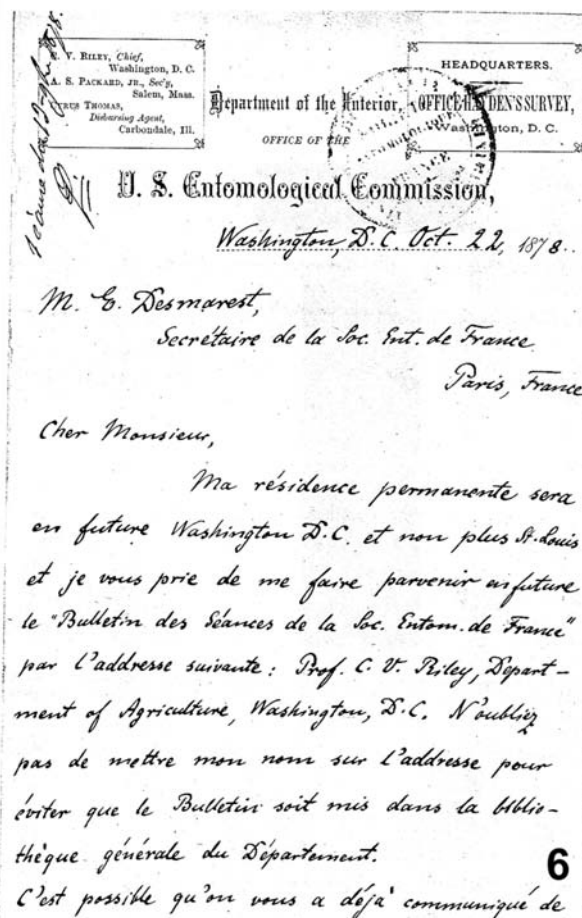 V. RILEY, Chief,
Washington, D. C.
A. S. PACKARD, JR., Sec'y,
Salem, Mass.
CYRUS THOMAS,
Disbursing Agent,
Carbondale, Ill.
HEADQUARTERS.
OFFICE HAYDEN'S SURVEY,
Washington, D. C.
Department of the Interior,
OFFICE OF THE
U. S. Entomological Commission,
Washington, D.C. Oct. 22, 1878.
M. E. Desmarest,
Secrétaire de la Soc. Ent. de France
Paris, France
Cher Monsieur,
Ma résidence permanente sera
en future Washington D.C. et non plus St. Louis
et je vous prie de me faire parvenir en future
le "Bulletin des Séances de la Soc. Entom. de France"
par l'addresse suivante: Prof. C. V. Riley, Depart-
ment of Agriculture, Washington, D.C. N'oubliez
pas de mettre mon nom sur l'addresse pour
éviter que le Bulletin soit mis dans la biblio-
thèque générale du Département.
6
C'est possible qu'on vous a déjà communiqué de